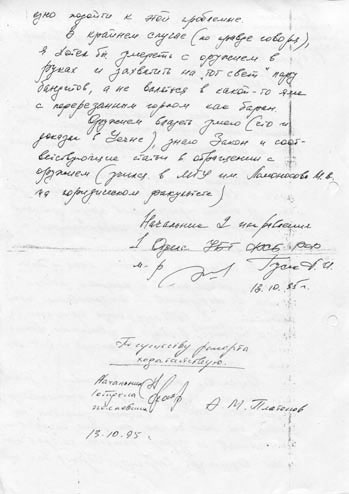 езно подойти к этой проблеме.
В крайнем случае (по правде говоря),
я хотел бы умереть с оружием в
руках и захватить на "тот свет" пару
бандитов, а не валяться в какой-то яме
с перерезанным горлом как баран.
Оружием владею умело (что и
доказал в Чечне), знаю Закон и соот-
ветствующие статьи в обращении с
оружием (учился в МГУ им. Ломоносова М.В.
на юридическом факультете)
Начальник 2 направления
1 Отдела УБТ ФСБ РФ
м-р
13.10.95г.
По существу рапорта
ходатайствую.
Начальник
1 отдела
полковник
А.М. Платонов
13.10.95г.